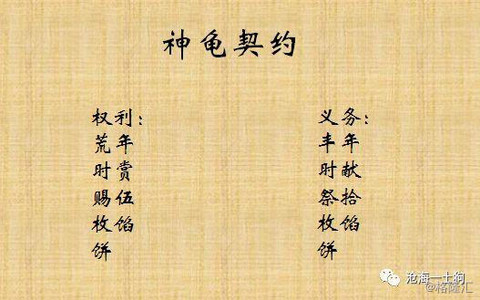 神龟契约
权利：
荒年
时赏
赐伍
枚馅
饼
义务：
丰年
时献
祭拾
枚馅
饼
沧海一土狗
@格隆汇